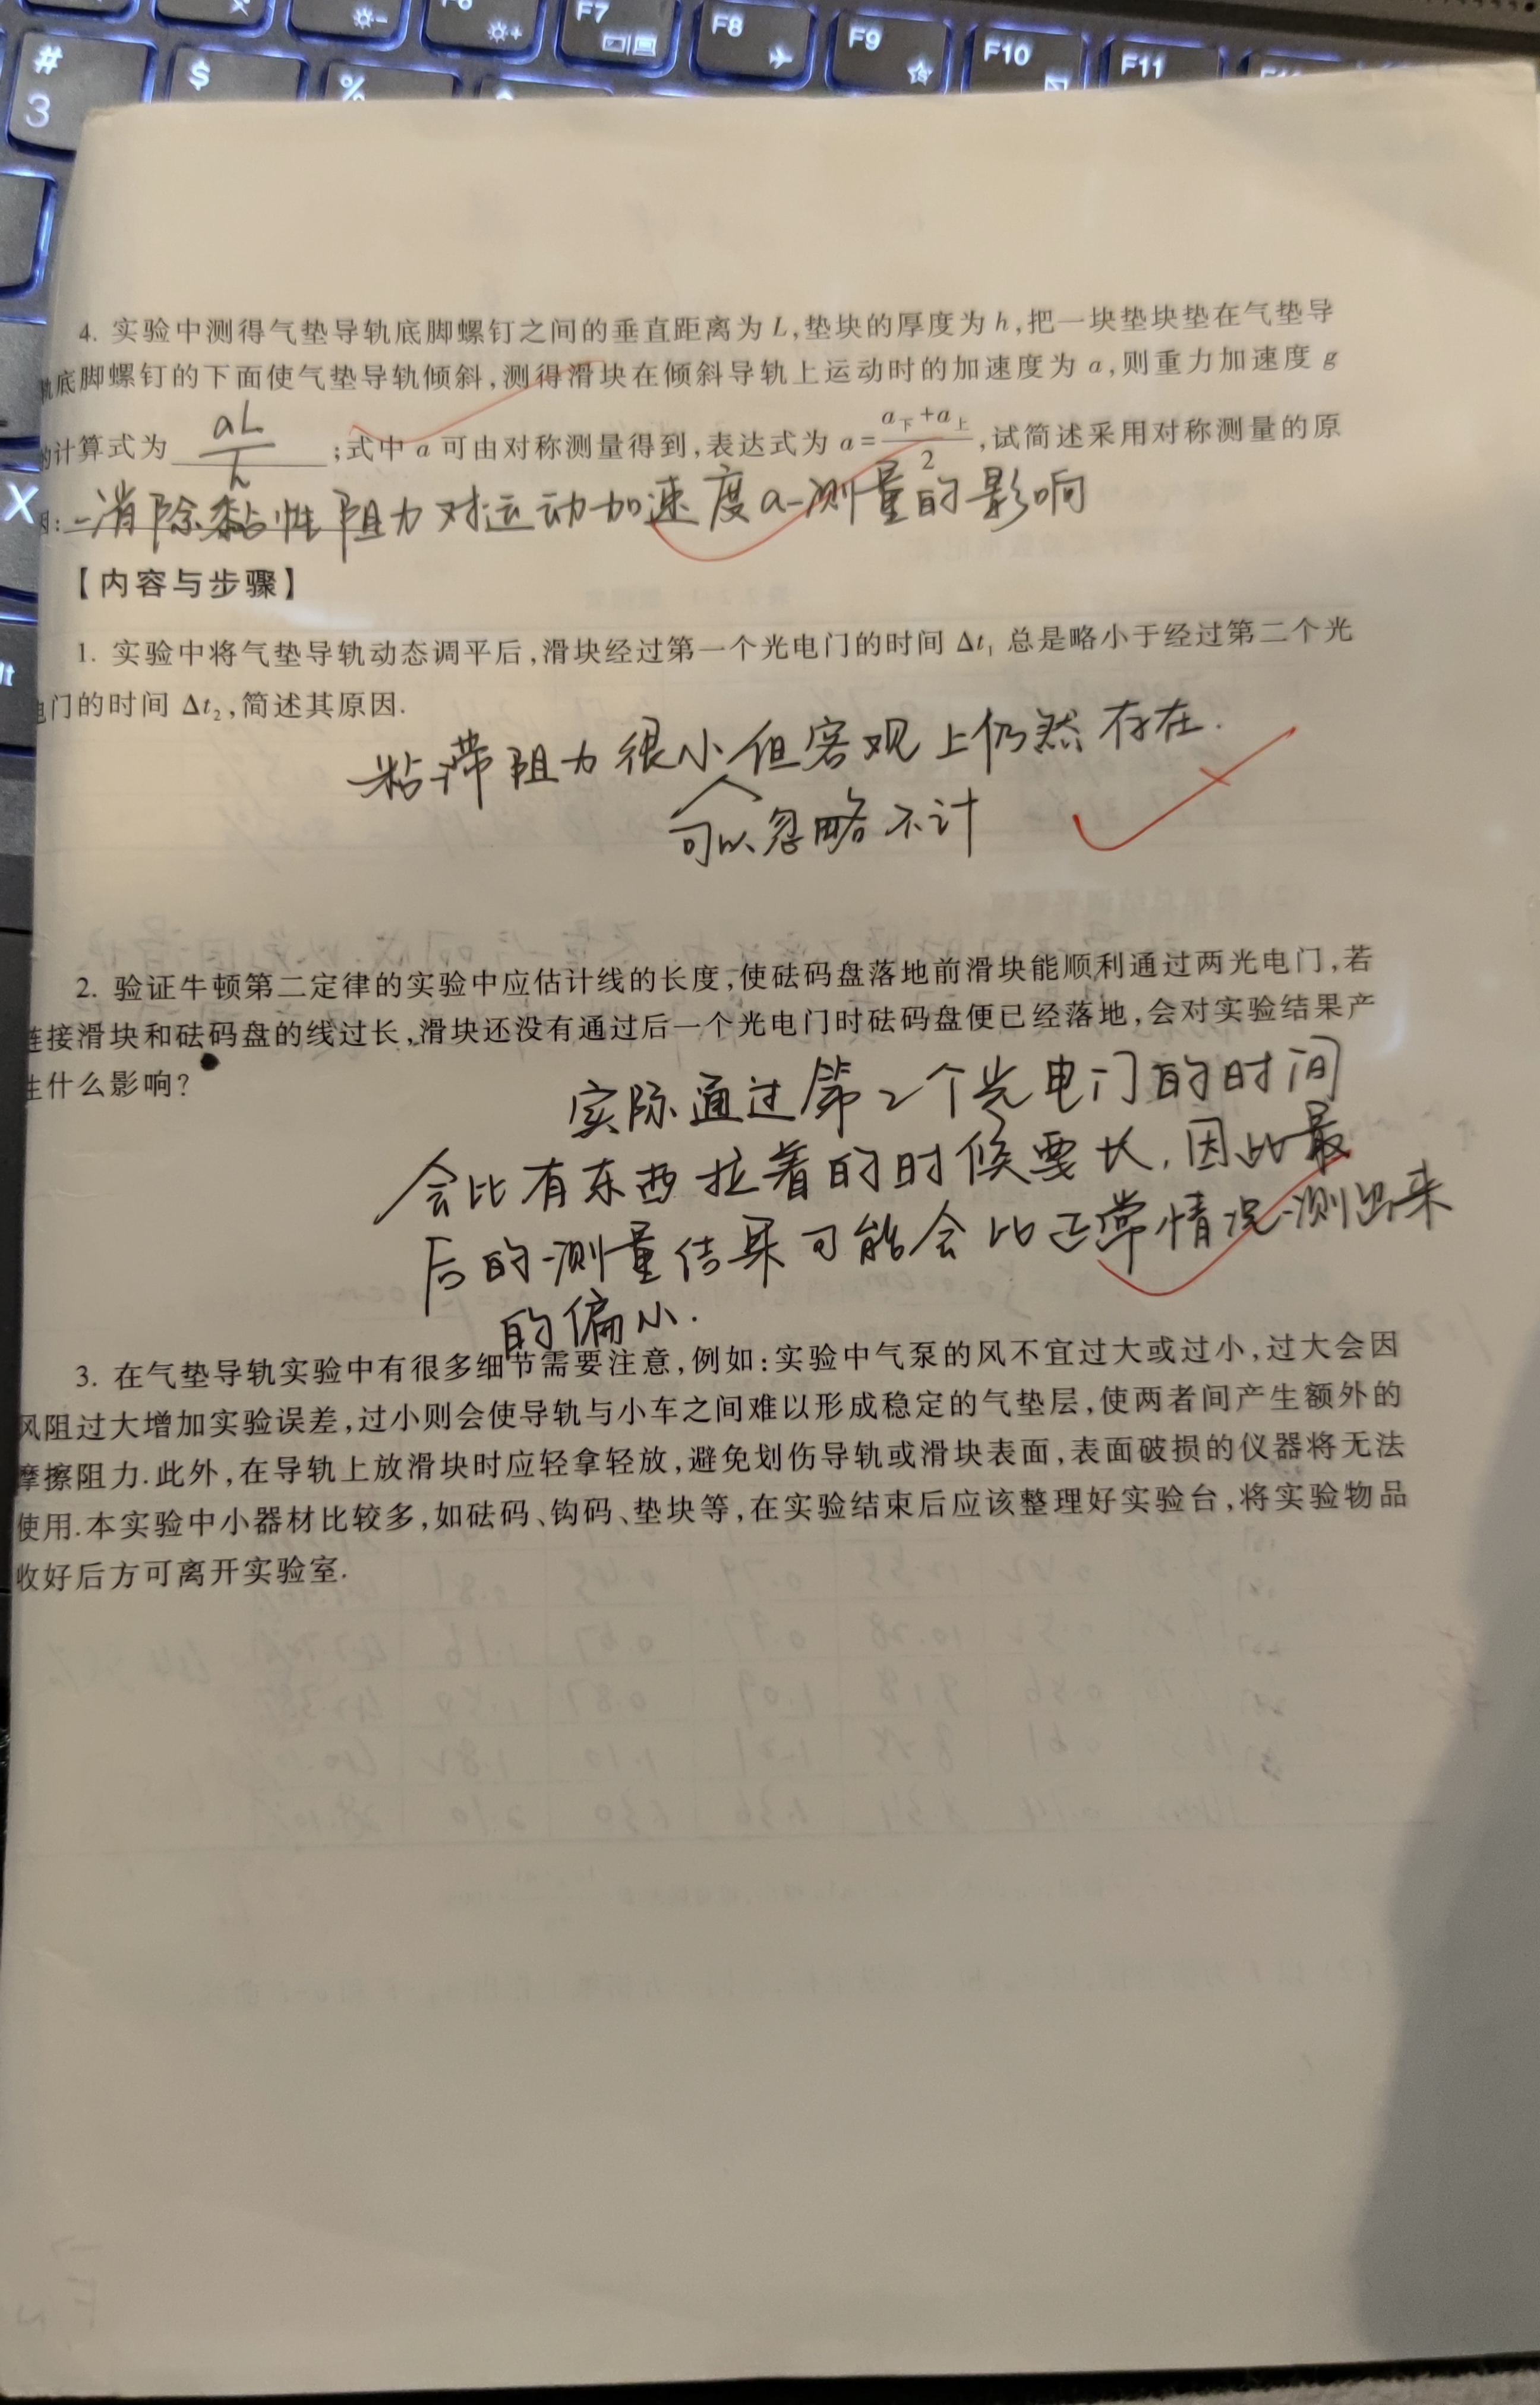 F7
F8
F9
F10
F11
#
3
$
%
X
4. 实验中测得气垫导轨底脚螺钉之间的垂直距离为 L,垫块的厚度为 h,把一块垫块垫在气垫导
轨底脚螺钉的下面使气垫导轨倾斜,测得滑块在倾斜导轨上运动时的加速度为 a,则重力加速度 g
的计算式为 aL/h ;式中 a 可由对称测量得到,表达式为 a=(a下+a上)/2,试简述采用对称测量的原
因: 消除黏性阻力对运动加速度a测量的影响
【内容与步骤】
1. 实验中将气垫导轨动态调平后,滑块经过第一个光电门的时间 Δt₁ 总是略小于经过第二个光
电门的时间 Δt₂,简述其原因.
粘滞阻力很小但客观上仍然存在.
可以忽略不计
2. 验证牛顿第二定律的实验中应估计线的长度,使砝码盘落地前滑块能顺利通过两光电门,若
连接滑块和砝码盘的线过长,滑块还没有通过后一个光电门时砝码盘便已经落地,会对实验结果产
生什么影响?
实际通过第2个光电门的时间
会比有东西拉着的时候要长,因此最
后的测量结果可能会比正常情况测出来
的偏小.
3. 在气垫导轨实验中有很多细节需要注意,例如:实验中气泵的风不宜过大或过小,过大会因
风阻过大增加实验误差,过小则会使导轨与小车之间难以形成稳定的气垫层,使两者间产生额外的
摩擦阻力.此外,在导轨上放滑块时应轻拿轻放,避免划伤导轨或滑块表面,表面破损的仪器将无法
使用.本实验中小器材比较多,如砝码、钩码、垫块等,在实验结束后应该整理好实验台,将实验物品
收好后方可离开实验室.